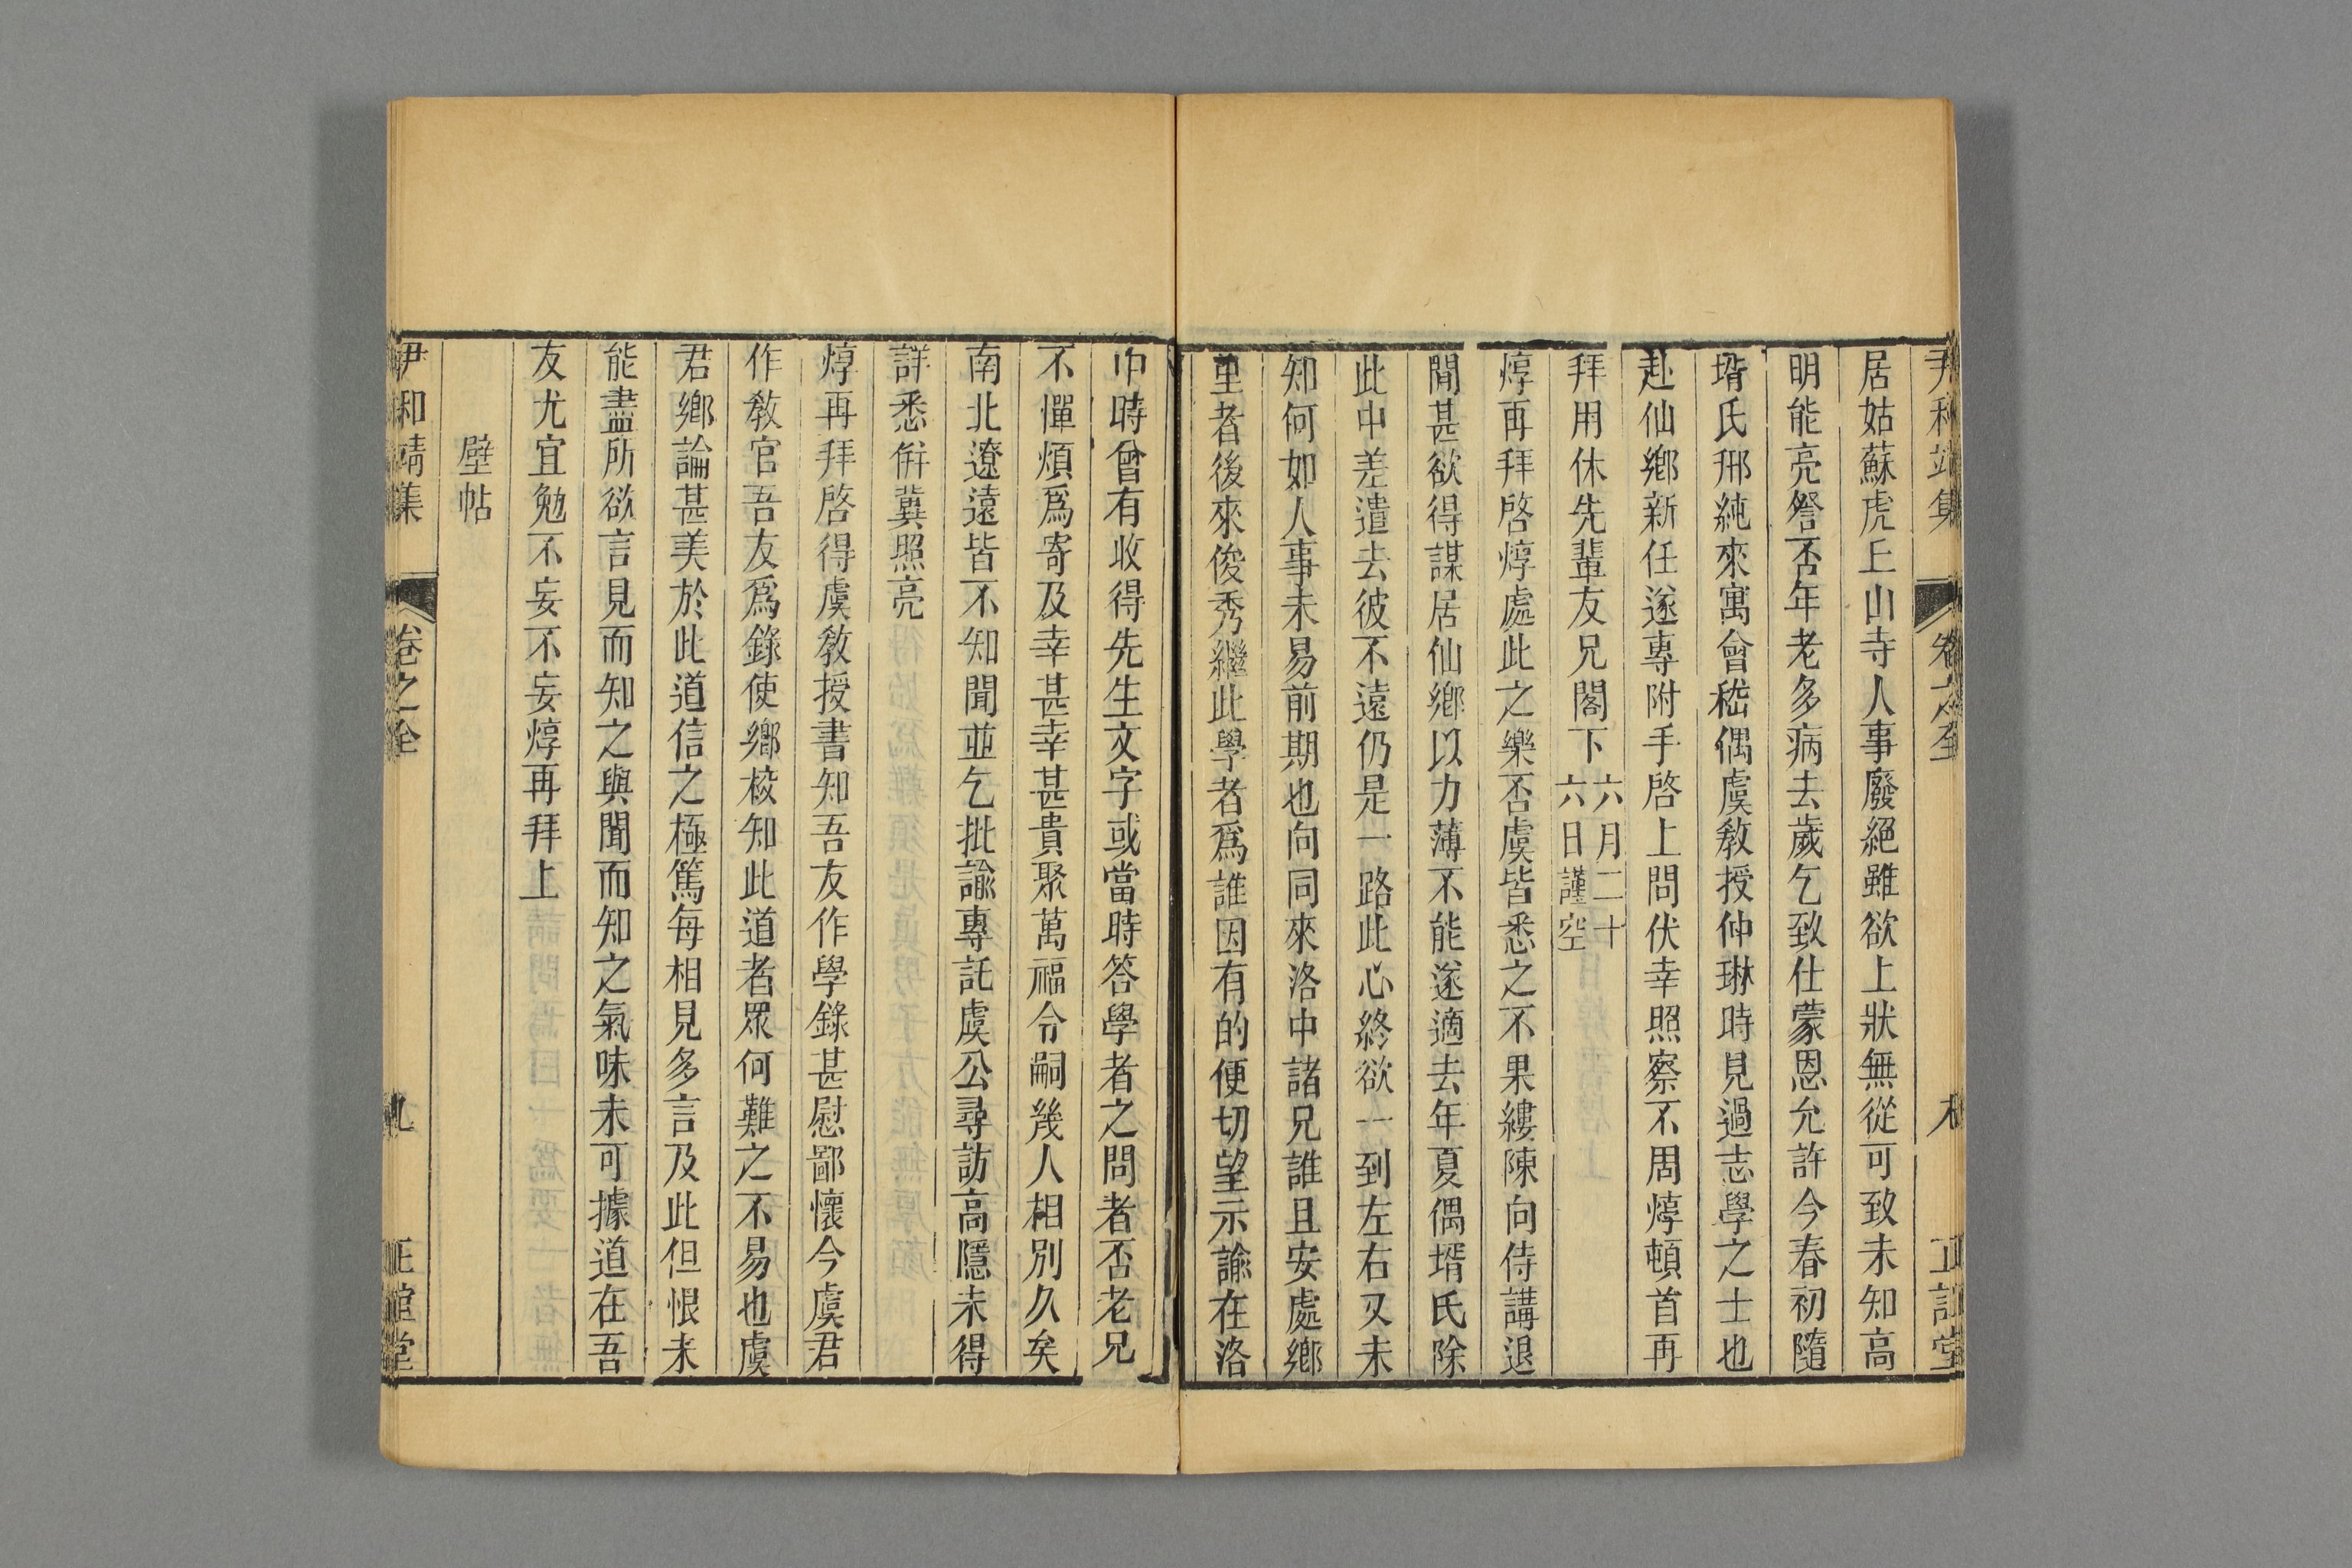 居姑蘇虎丘山寺人事廢絕雖欲上狀無從可致未知高
明能亮詧否年老多病去歲乞致仕蒙恩允許今春初隨
壻氏邢純來寓會嵇偶虞教授仲琳時見過志學之士也
赴仙鄉新任遂專附手啓上問伏幸照察不周焞頓首再
拜用休先輩友兄閣下六月二十六日謹空
焞再拜啓焞處此之樂否虞皆悉之不果縷陳向侍講退
閒甚欲得謀居仙鄉以力薄不能遂適去年夏偶壻氏除
此中差遣去彼不遠仍是一路此心終欲一到左右又未
知何如人事未易前期也向同來洛中諸兄誰且安處鄉
里者後來俊秀繼此學者爲誰因有的便切望示諭在洛
中時曾有收得先生文字或當時答學者之問者否老兄
不憚煩爲寄及幸甚幸甚貴聚萬福令嗣幾人相別久矣
南北遼遠皆不知聞並乞批諭專託虞公尋訪高隱未得
詳悉併冀照亮
焞再拜啓得虞教授書知吾友作學錄甚慰鄙懷今虞君
作敎官吾友爲錄使鄉校知此道者眾何難之不易也虞
君鄉論甚美於此道信之極篤每相見多言及此但恨未
能盡所欲言見而知之與聞而知之氣味未可據道在吾
友尤宜勉不妄不妄焞再拜上
壁帖
尹和靖集 卷之全 九 正誼堂